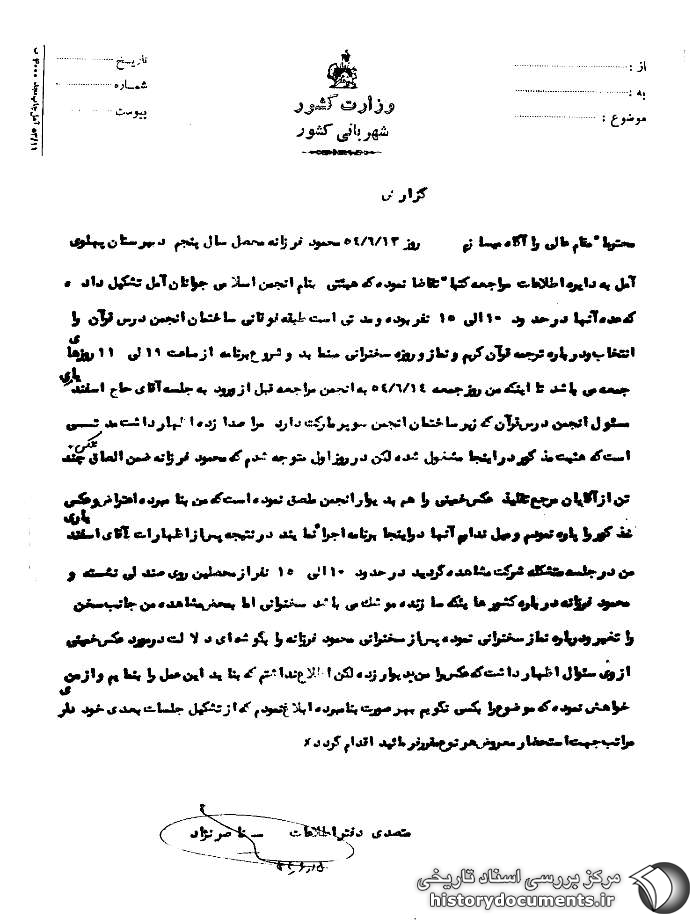 از :
به :
موضوع :
وزارت کشور
شهربانی کشور
تاریخ
شماره
پیوست
گزارش
محترما" مقام عالی را آگاه میسازم روز ۵۴/۶/۱۳ محمود فرزانه محصل سال پنجم دبیرستان پهلوی
آمل به دایره اطلاعات مراجعه کتبا" تقاضا نموده که هیئتی بنام انجمن اسلامی جوانان آمل تشکیل داده
که عده آنها در حدود ۱۰ الی ۱۵ نفر بوده و مدتی است طبقه فوقانی ساختمان انجمن درس قرآن را
انتخاب و درباره ترجمه قرآن کریم و نماز و روزه سخنرانی مینمایند و شروع برنامه از ساعت ۱۹ الی ۱۱ روزهای
جمعه می باشد تا اینکه من روز جمعه ۵۴/۶/۱۴ به انجمن مراجعه قبل از ورود به جلسه آقای حاج اسفندیاری
مسئول انجمن درس قرآن که زیر ساختمان انجمن سوپر مارکت دارد مرا صدا زده اظهار داشت مدتسی
است که هیئت مذکور در اینجا مشغول شده لکن در روز اول متوجه شدم که محمود فرزانه ضمن الصاق عکس چند
تن از آقایان مرجع تقلید عکس خمینی را هم بدیوار انجمن ملصق نموده است که من بنامبرده اعتراض و عکس
مذکور را پاره نمودم و میل ندارم آنها در اینجا برنامه اجرا نمایند در نتیجه پس از اظهارات آقای اسفندیاری
من در جلسه متشکله شرکت مشاهده گردید در حدود ۱۰ الی ۱۵ نفر از محصلین روی صندلی نشسته و
محمود فرزانه درباره کشورهاییکه سازنده موشک می باشد سخنرانی اما بمحض مشاهده من جانب سخن
را تغییر و درباره نماز سخنرانی نموده پس از سخنرانی محمود فرزانه را بگوشه ای دلالت در مورد عکس خمینی
از وی سئوال اظهار داشت که عکس را من بدیوار زده لکن اطلاع نداشتم که بناید این عمل را بنمایم و از من
خواهش نموده که موضوع را بکسی نگویم بهر صورت بنامبرده ابلاغ نمودم که از تشکیل جلسات بعدی خود داری
مراتب جهت استحضار معروض هر نوع مقرر فرمائید اقدام گردد
متصدی دفتر اطلاعات – ناصرنژاد
مرکز بررسی اسناد تاریخی
historydocuments.ir